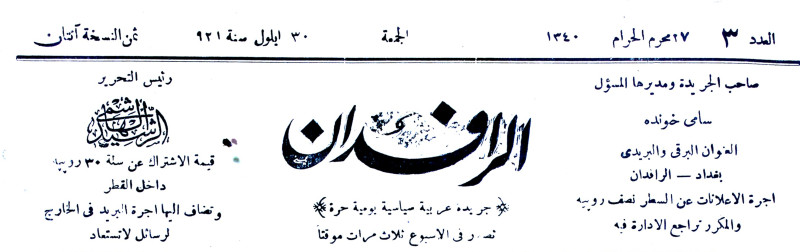 العدد ٣ ٢٧ محرم الحرام ١٣٤٠ الجمعة ٣٠ ايلول سنة ٩٢١ ثمن النسخة آنتان
صاحب الجريدة ومديرها المسؤل
سامي خونده
العنوان البرقي والبريدي
بغداد — الرافدان
اجرة الاعلانات عن السطر نصف روبيه
والمكرر تراجع الادارة فيه
الرافدان
جريدة عربية سياسية يومية حرة
تصدر في الاسبوع ثلاث مرات موقتا
رئيس التحرير
قيمة الاشتراك عن سنة ٣٠ روبيه
داخل القطر
وتضاف اليها اجرة البريد في الخارج
لرسائل لاتستعاد